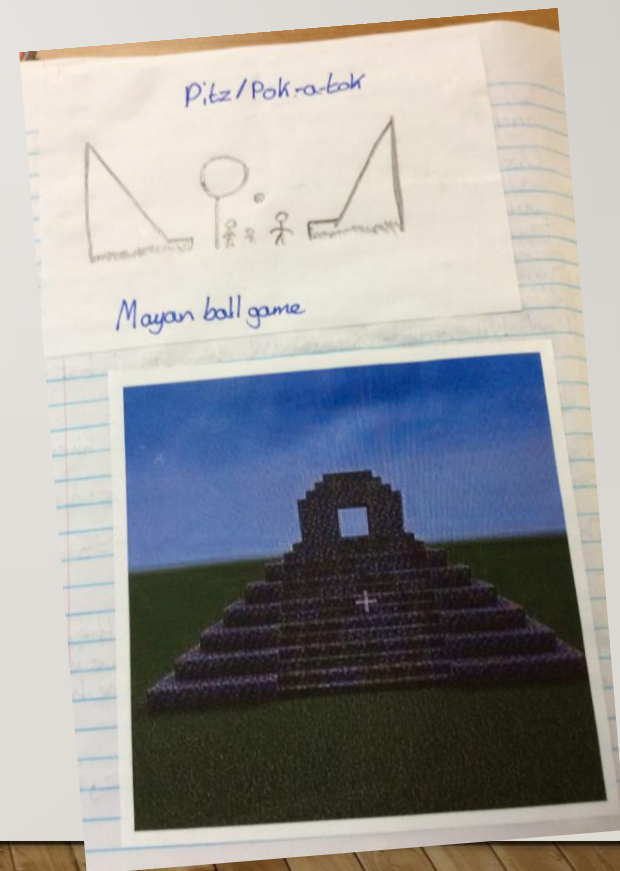 Pitz/Pok-a-tok
Mayan ball game